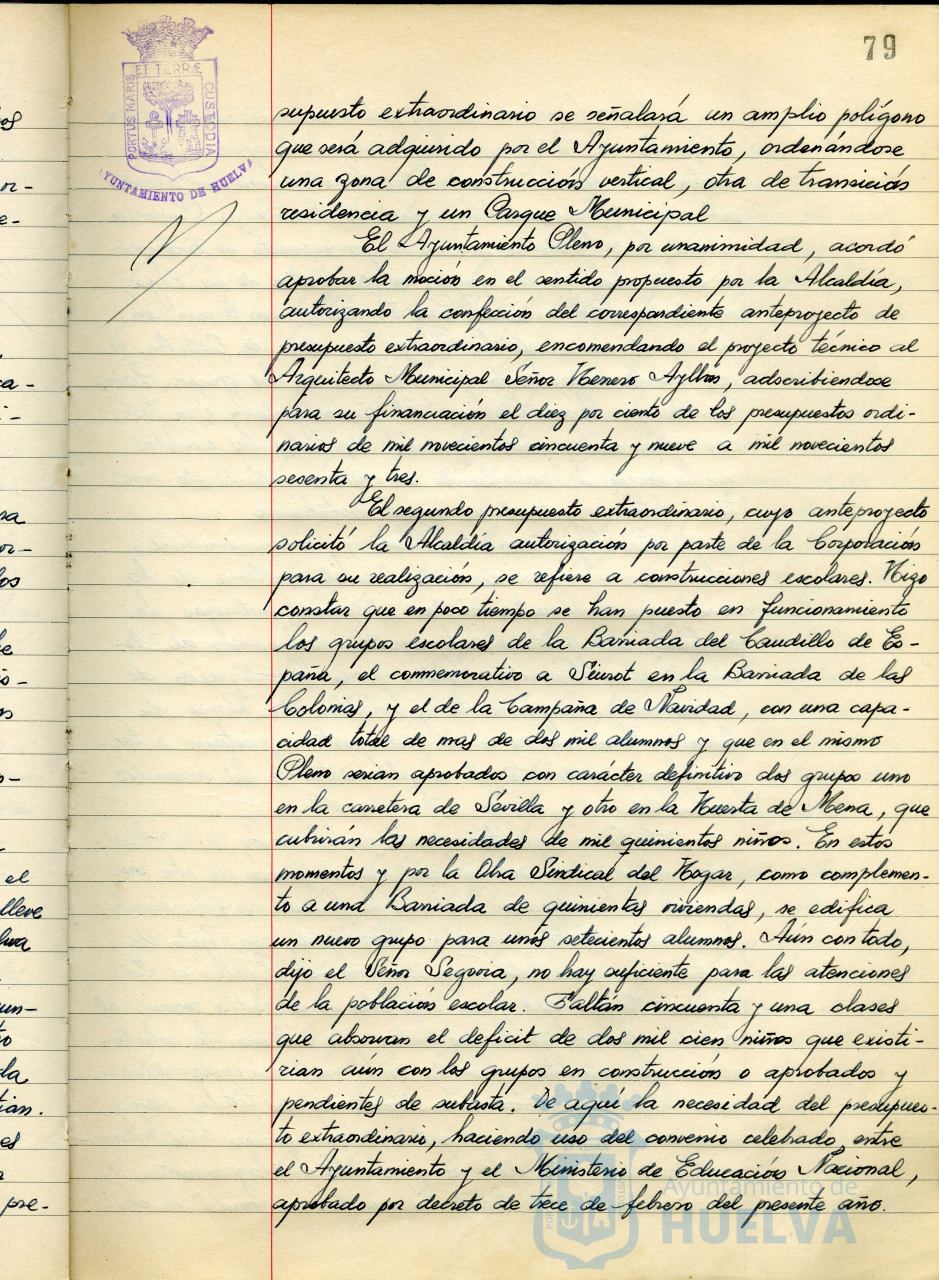 79
PORTUS MARIS ET TERRÆ CUSTODIA
AYUNTAMIENTO DE HUELVA
supuesto extraordinario se señalará un amplio polígono
que será adquirido por el Ayuntamiento, ordenándose
una zona de construcción vertical, otra de transición
residencia y un Parque Municipal
El Ayuntamiento Pleno, por unanimidad, acordó
aprobar la moción en el sentido propuesto por la Alcaldía,
autorizando la confección del correspondiente anteproyecto de
presupuesto extraordinario, encomendando el proyecto técnico al
Arquitecto Municipal Señor Herrero Ayllón, adscribiendose
para su financiación el diez por ciento de los presupuestos ordi-
narios de mil novecientos cincuenta y nueve a mil novecientos
sesenta y tres.
El segundo presupuesto extraordinario, cuyo anteproyecto
solicitó la Alcaldía autorización por parte de la Corporación
para su realización, se refiere a construcciones escolares. Hizo
constar que en poco tiempo se han puesto en funcionamiento
los grupos escolares de la Barriada del Caudillo de Es-
paña, el conmemorativo a Siurot en la Barriada de las
Colonias, y el de la Campaña de Navidad, con una capa-
cidad total de mas de dos mil alumnos y que en el mismo
Pleno serian aprobados con carácter definitivo dos grupos uno
en la carretera de Sevilla y otro en la Huerta de Mena, que
cubrirán las necesidades de mil quinientos niños. En estos
momentos y por la Obra Sindical del Hogar, como complemen-
to a una Barriada de quinientas viviendas, se edifica
un nuevo grupo para unos setecientos alumnos. Aún con todo,
dijo el Señor Segovia, no hay suficiente para las atenciones
de la población escolar. Faltan cincuenta y una clases
que absorvan el deficit de dos mil cien niños que existi-
rian aún con los grupos en construcción o aprobados y
pendientes de subasta. De aquí la necesidad del presupues-
to extraordinario, haciendo uso del convenio celebrado entre
el Ayuntamiento y el Ministerio de Educación Nacional,
aprobado por decreto de trece de febrero del presente año.
Ayuntamiento de
HUELVA